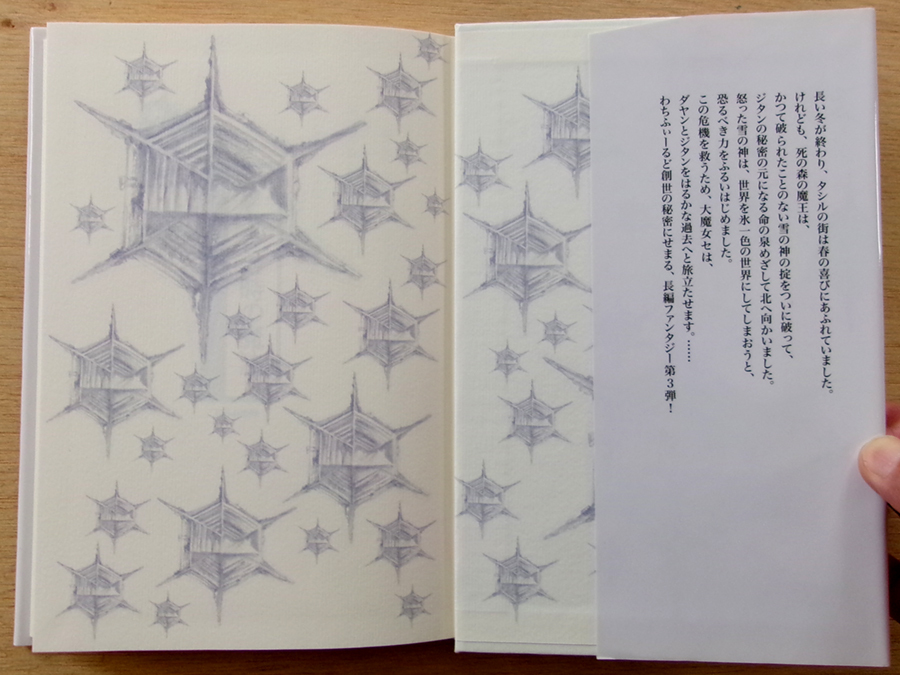 長い冬が終わり、タシルの街は春の喜びにあふれていました。
けれども、死の森の魔王は、
かつて破られたことのない雪の神の掟をついに破って、
ジタンの秘密の元になる命の泉めざして北へ向かいました。
怒った雪の神は、世界を氷一色の世界にしてしまおうと、
恐るべき力をふるいはじめました。
この危機を救うため、大魔女セは、
ダヤンとジタンをはるかな過去へと旅立たせます。……
わちふぃーるど創世の秘密にせまる、長編ファンタジー第3弾!